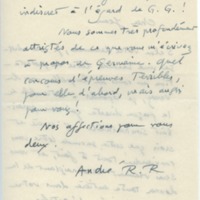 indiscret à l'égard de G. G. !
Nous sommes très profondément
attristés de ce que vous m'écrivez
à propos de Germaine. Quel
parcours d'épreuves terribles,
pour elle d'abord, mais aussi
pour vous !
Nos affections pour vous
deux.
André R. R